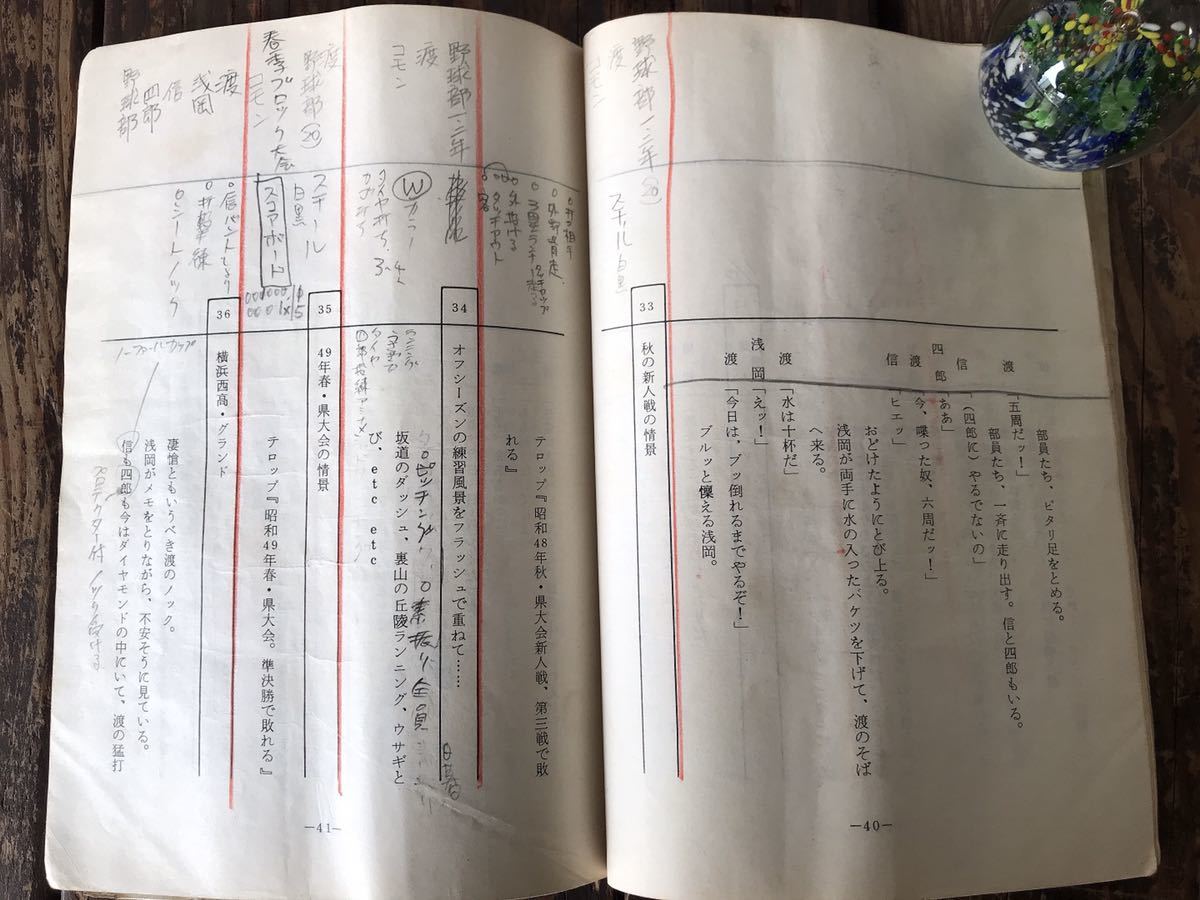 部員たち、ピタリ足をとめる。
渡「五周だッ！」
部員たち、一斉に走り出す。信と四郎もいる。
信「（四郎に）やるでないの」
四郎「ああ」
渡「今、喋った奴、六周だッ！」
信「ヒエッ」
おどけたようにとび上る。
浅岡が両手に水の入ったバケツを下げて、渡のそば
へ来る。
渡「水は十杯だ」
浅岡「えッ！」
渡「今日は、ブッ倒れるまでやるぞ！」
ブルッと慄える浅岡。
33
秋の新人戦の情景
野球部一、二年
渡
コモン
スチール白黒
—40—
テロップ『昭和48年秋・県大会新人戦、第三戦で敗
れる』
34
オフシーズンの練習風景をフラッシュで重ねて……
野球部一、二年
渡
コモン
W
カラー
ピッチング
素振り全員
坂道のダッシュ、裏山の丘陵ランニング、ウサギと
び、etc etc
35
49年春・県大会の情景
渡
野球部
スチール
白黒
テロップ『昭和49年春・県大会。準決勝で敗れる』
春季ブロック大会
コモン
スコアボード
36
横浜西高・グランド
渡
浅岡
信
四郎
野球部
シートノック
凄愴ともいうべき渡のノック。
浅岡がメモをとりながら、不安そうに見ている。
信も四郎も今はダイヤモンドの中にいて、渡の猛打
—41—